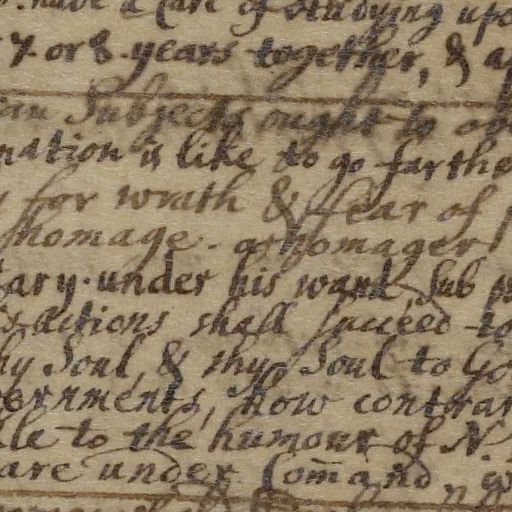 have a Care of studying upo
7 or 8 years together, & a
Subjects ought to ob
nation is like to go farthe
for wrath & fear of
homage. as homager
ary. under his ward, sub
actions shall succeed to
hy Soul, & thy Soul to Go
ernments, how contrar
le to the humour of N.
are under Com̄and, w